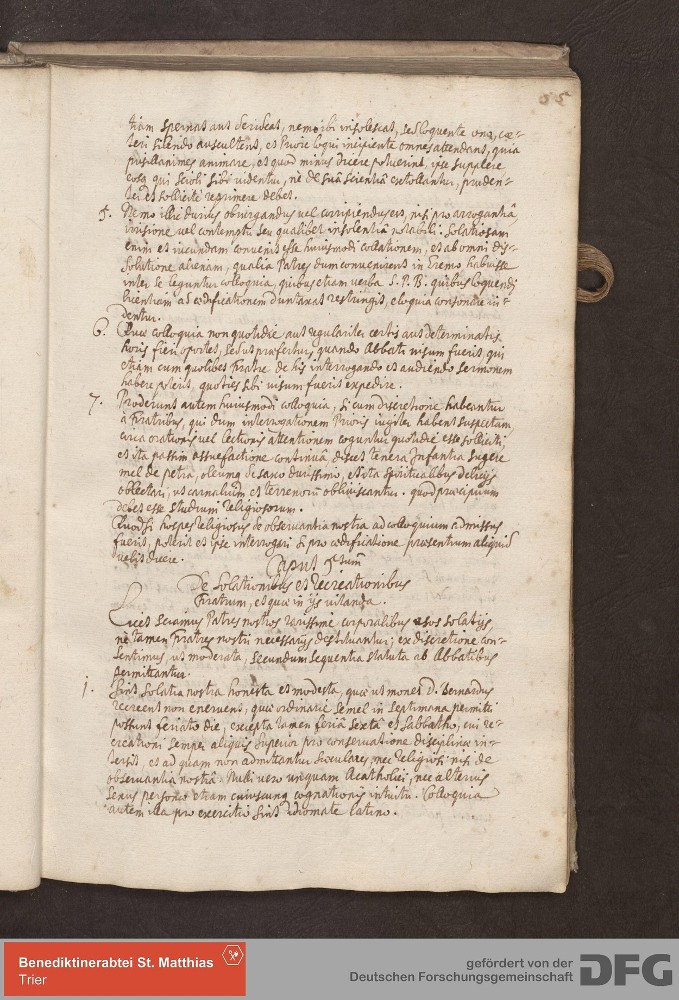 55
tiam spernat aut derideat, nemo ibi insolescat, sed loquente uno, cæ-
teri silendo auscultent, et Priore loqui incipiente omnes attendant, quia
pusillanimes animare, et quod minus dicere potuerint, ipse supplere
eosq qui scioli sibi videntur, nè de suâ scientiâ extollantur, pruden-
ter et sollicitè reprimere debet.
5. Nemo illic duriùs obiurgandus vel corripiendus est, nisi pro arrogantiâ
irrisione vel contemptu seu qualibet insolentiâ notabili. Solatiosam
enim et iucundam convenit esse huiusmodi collationem, et ab omni dis-
solutione alienam, qualia Patres dum convenirent in Eremo habuisse
inter se leguntur colloquia, quibus etiam verba S. P. B. quibus loquendi
licentiam ad ædificationem duntaxat restringit, eloquia consonare vi-
dentur.
6. Quæ colloquia non quotidie aut regulariter certis aut determinatis
horis fieri oportet, sed ut præfertur, quando Abbati visum fuerit, qui
etiam cum quolibet Fratre de his interrogando et audiendo sermonem
habere poterit, quoties sibi visum fuerit expedire.
7. Proderunt autem huiusmodi colloquia, si cum discretione habeantur
à Fratribus, qui dum interrogationem Prioris iugiter habent suspectam
circa orationis vel lectionis attentionem coguntur quotidiè esse solliciti
et ita passim assuefactione continuâ discet tenera Infantia sugere
mel de petra, oleumq de saxo durissimo, et ita spiritualibus delicijs
oblectari, ut carnalium et terrenorū obliviscantur. quod præcipuum
debet esse studium religiosorum.
Quodsi hospes religiosus de observantia nostra ad colloquium admissus
fuerit, poterit et ipse interrogari si pro ædificatione præsentium aliquid
velit dicere.
Caput 5tum
De Solationibus et recreationibus
Fratrum, et quæ in ijs vitanda.
Licet sciamus Patres nostros rarissimè corporalibus usos solatijs,
nè tamen Fratres nostri necessarijs destituantur; ex discretione con-
sentimus, ut moderata, secundum sequentia statuta ab Abbatibus
permittantur.
1. Sint solatia nostra honesta et modesta, quæ ut monet D. Bernardus
recreent non enervent, quæ ordinariè semel in septimana permitti
possunt feriato die, excepta tamen feriâ sextâ et sabbatho, cui re-
creationi semper aliquis superior pro conservatione disciplinæ in-
tersit, et ad quam non admittantur sæculares, nec religiosi nisi de
observantia nostrâ. Nulli vero unquam Acatholici, nec alterius
sexus personæ etiam cuiuscunq cognationis intuitu. Colloquia
autem illa pro exercitio sint idiomate latino.
Benediktinerabtei St. Matthias
Trier
gefördert von der
Deutschen Forschungsgemeinschaft
DFG